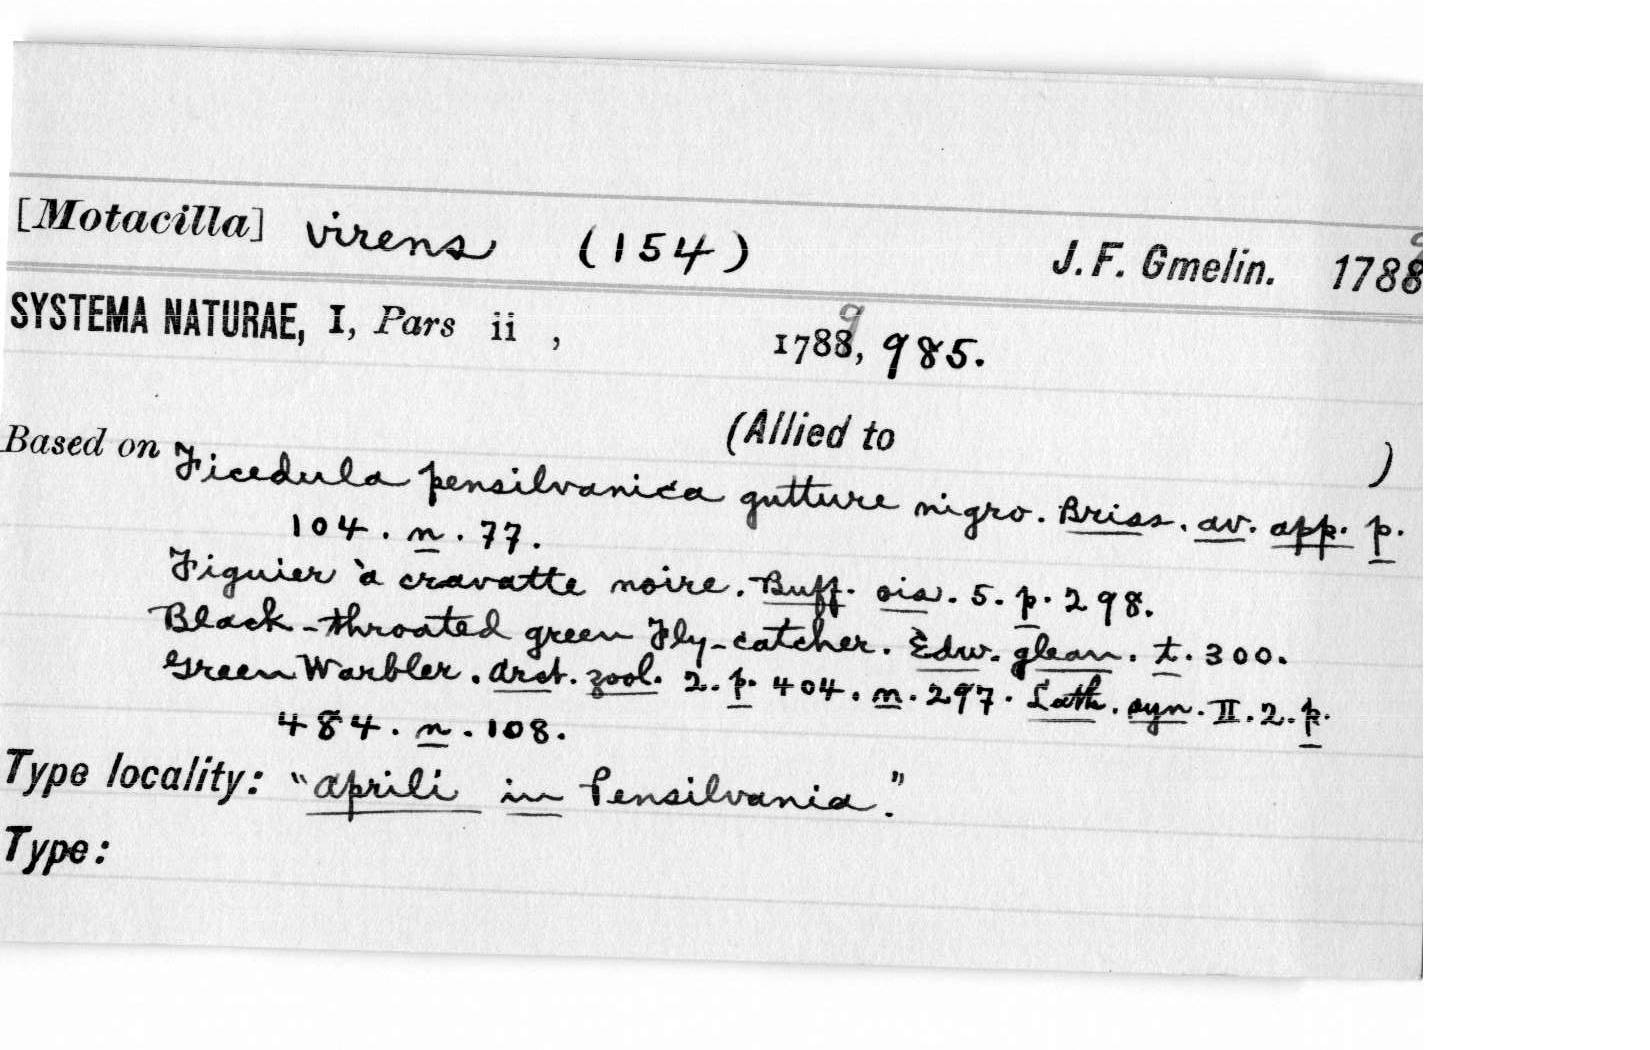 [Motacilla] virens (154) J. F. Gmelin. 1788 9
SYSTEMA NATURAE, I, Pars ii , 1788 9, 985.
(Allied to )
Based on Ficedula pensilvanica gutture nigro. Briss. av. app. p.
104. n. 77.
Figuier à cravatte noire. Buff. ois. 5. p. 298.
Black-throated green Fly-catcher. Edw. glean. t. 300.
Green Warbler. Arct. zool. 2. p. 404. n. 297. Lath. syn. II. 2. p.
484. n. 108.
Type locality: "Aprili in Pensilvania."
Type: